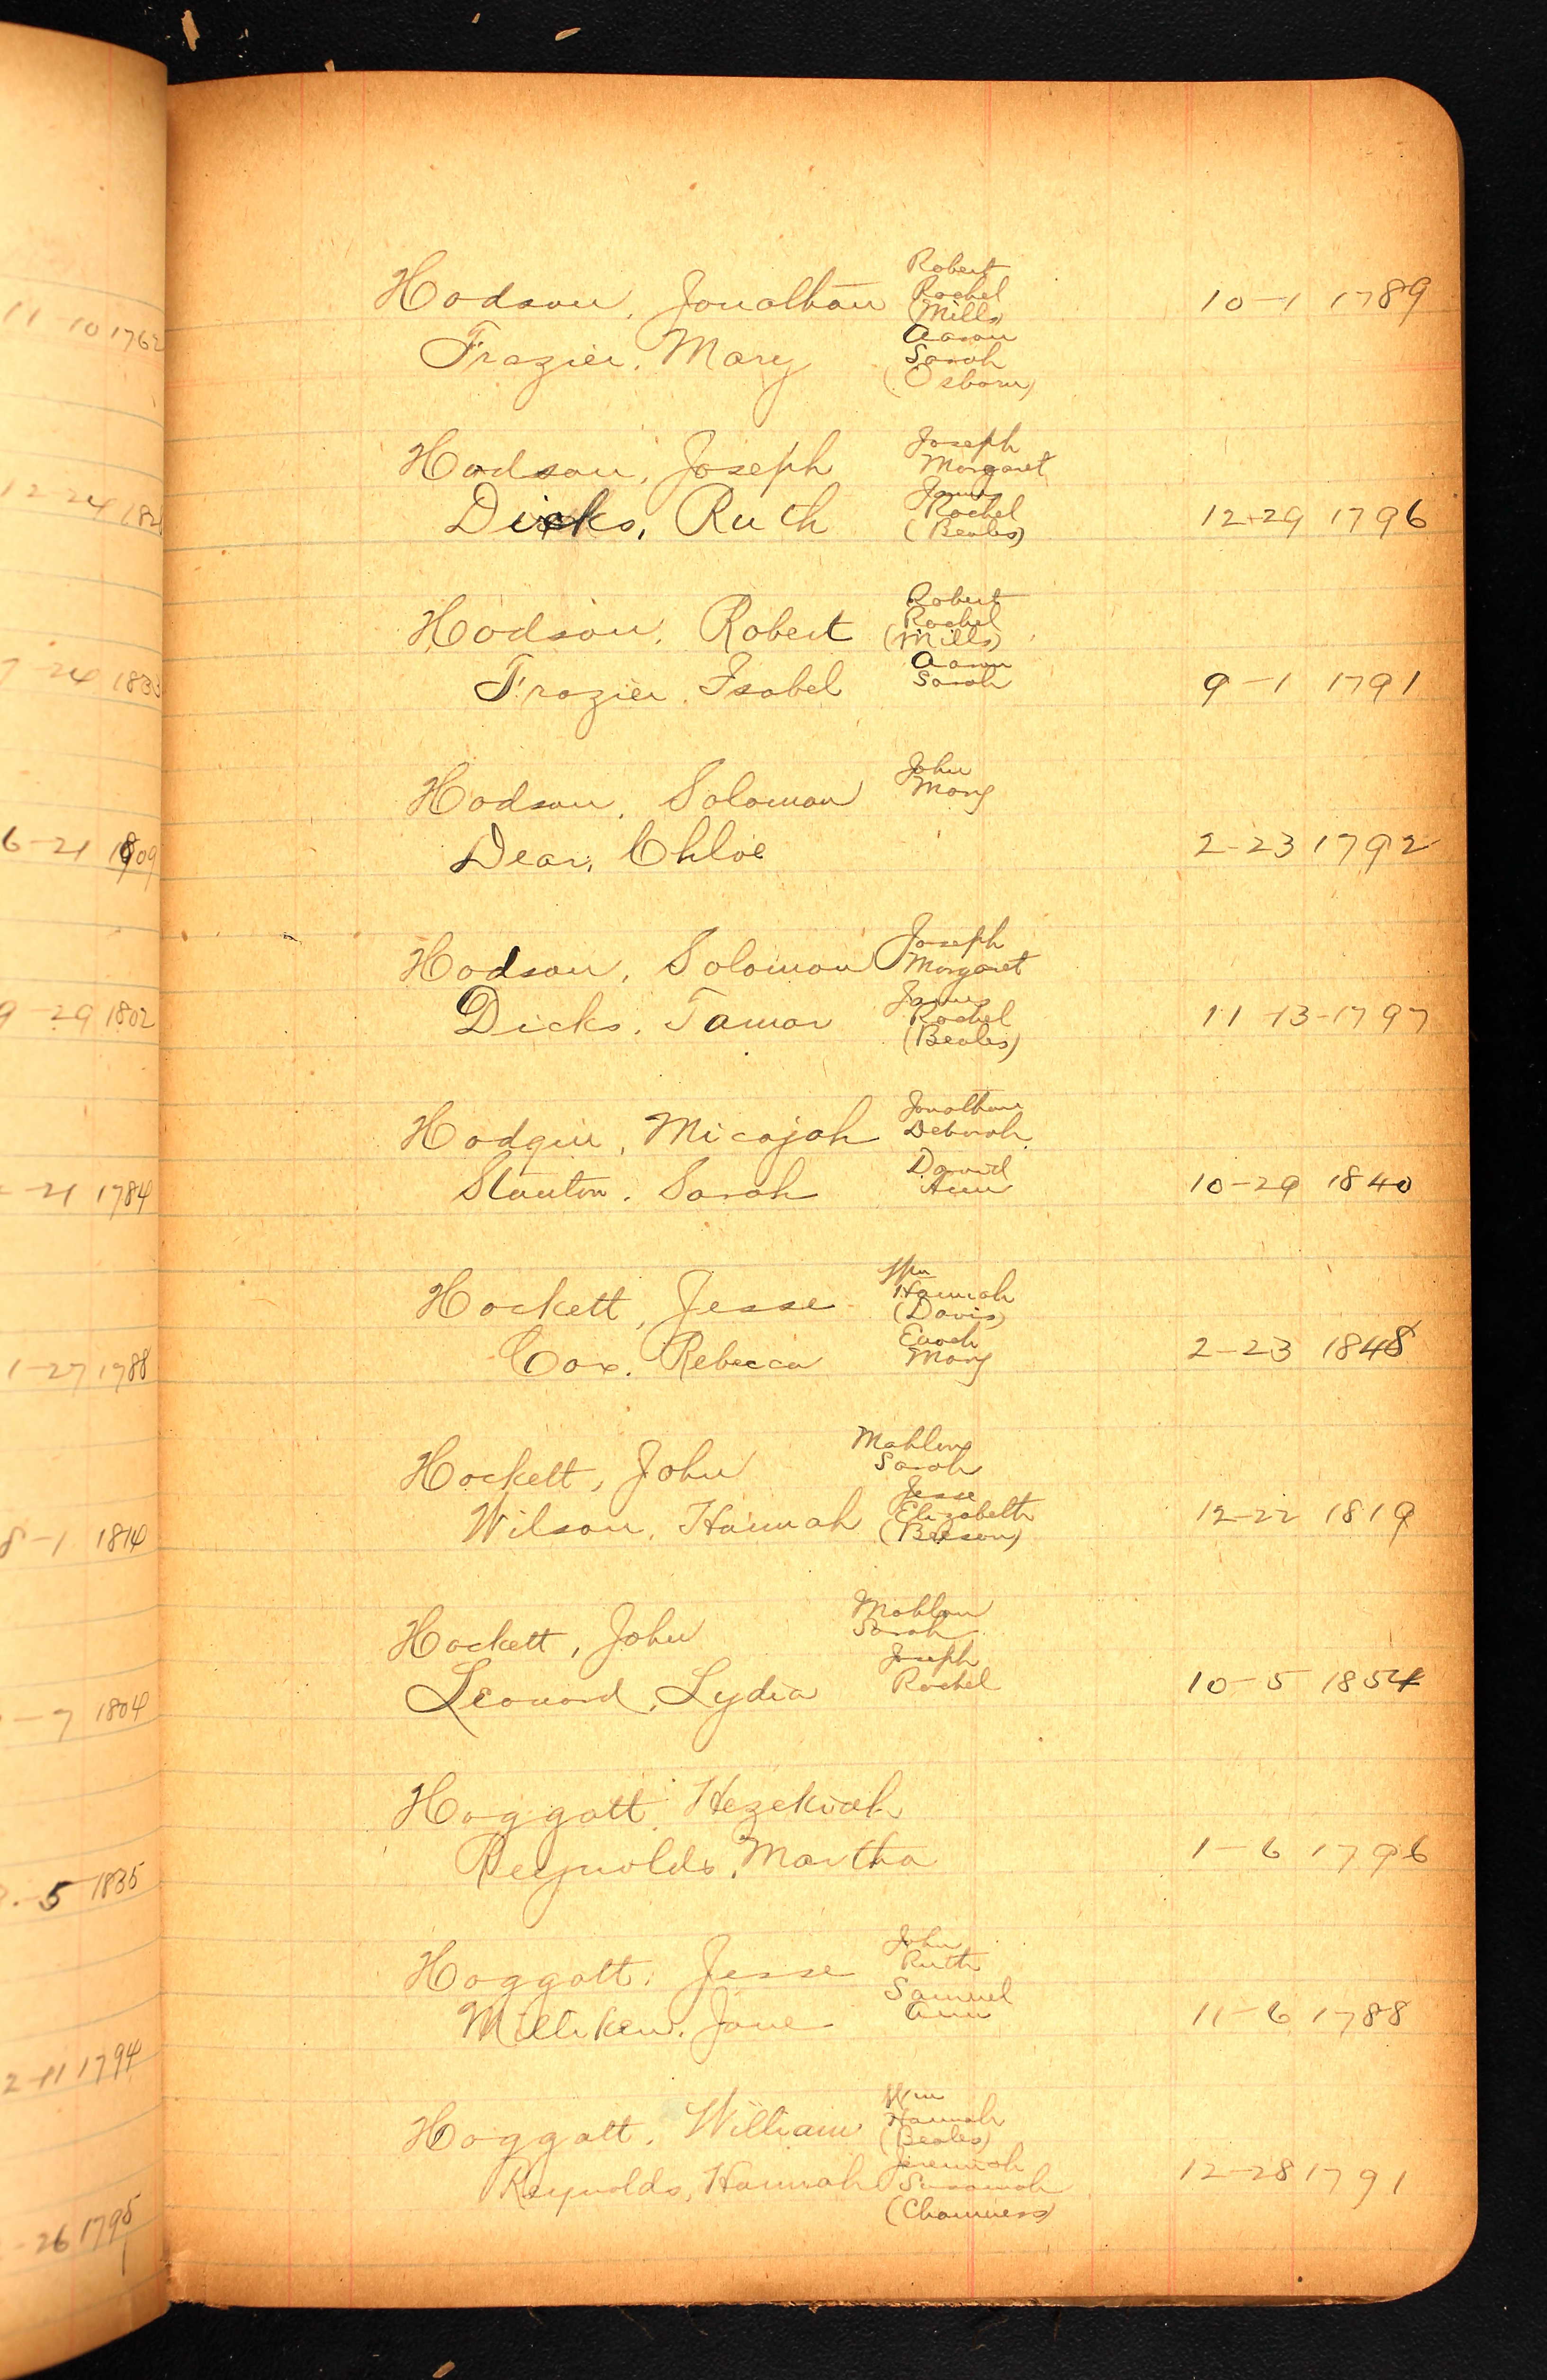 11 10 1762
12-24 182
7-24 183
6-21 1809
9-29 1802
-21 1784
1-27 1788
8-1 1814
-7 1804
5 1835
2-11 1794
-26 1795
Hodson, Jonathan Robert Rachel (Mills) 10-1 1789
Frazier, Mary Aaron Sarah (Osborn)
Hodson, Joseph Joseph Margaret
Dicks, Ruth James Rachel (Beales) 12-29 1796
Hodson, Robert Robert Rachel (Mills)
Frazier, Isabel Aaron Sarah 9-1 1791
Hodson, Solomon John Mary
Dean, Chloe 2-23 1792
Hodson, Solomon Joseph Margaret
Dicks, Tamar James Rachel (Beales) 11-13-1797
Hodgin, Micajah Jonathan Deborah
Stanton, Sarah David Ann 10-29 1840
Hockett, Jesse Wm Hannah (Davis)
Cox, Rebecca Enoch Mary 2-23 1848
Hockett, John Mahlon Sarah
Wilson, Hannah Jesse Elizabeth (Beeson) 12-22 1819
Hockett, John Mahlon Sarah
Leonard, Lydia Joseph Rachel 10-5 1854
Hoggatt, Hezekiah
Reynolds, Martha 1-6 1796
Hoggatt, Jesse John Ruth
Milliken, Jane Samuel Ann 11-6 1788
Hoggatt, William Wm Hannah (Beales)
Reynolds, Hannah Jeremiah Susannah (Chamness) 12-28 1791